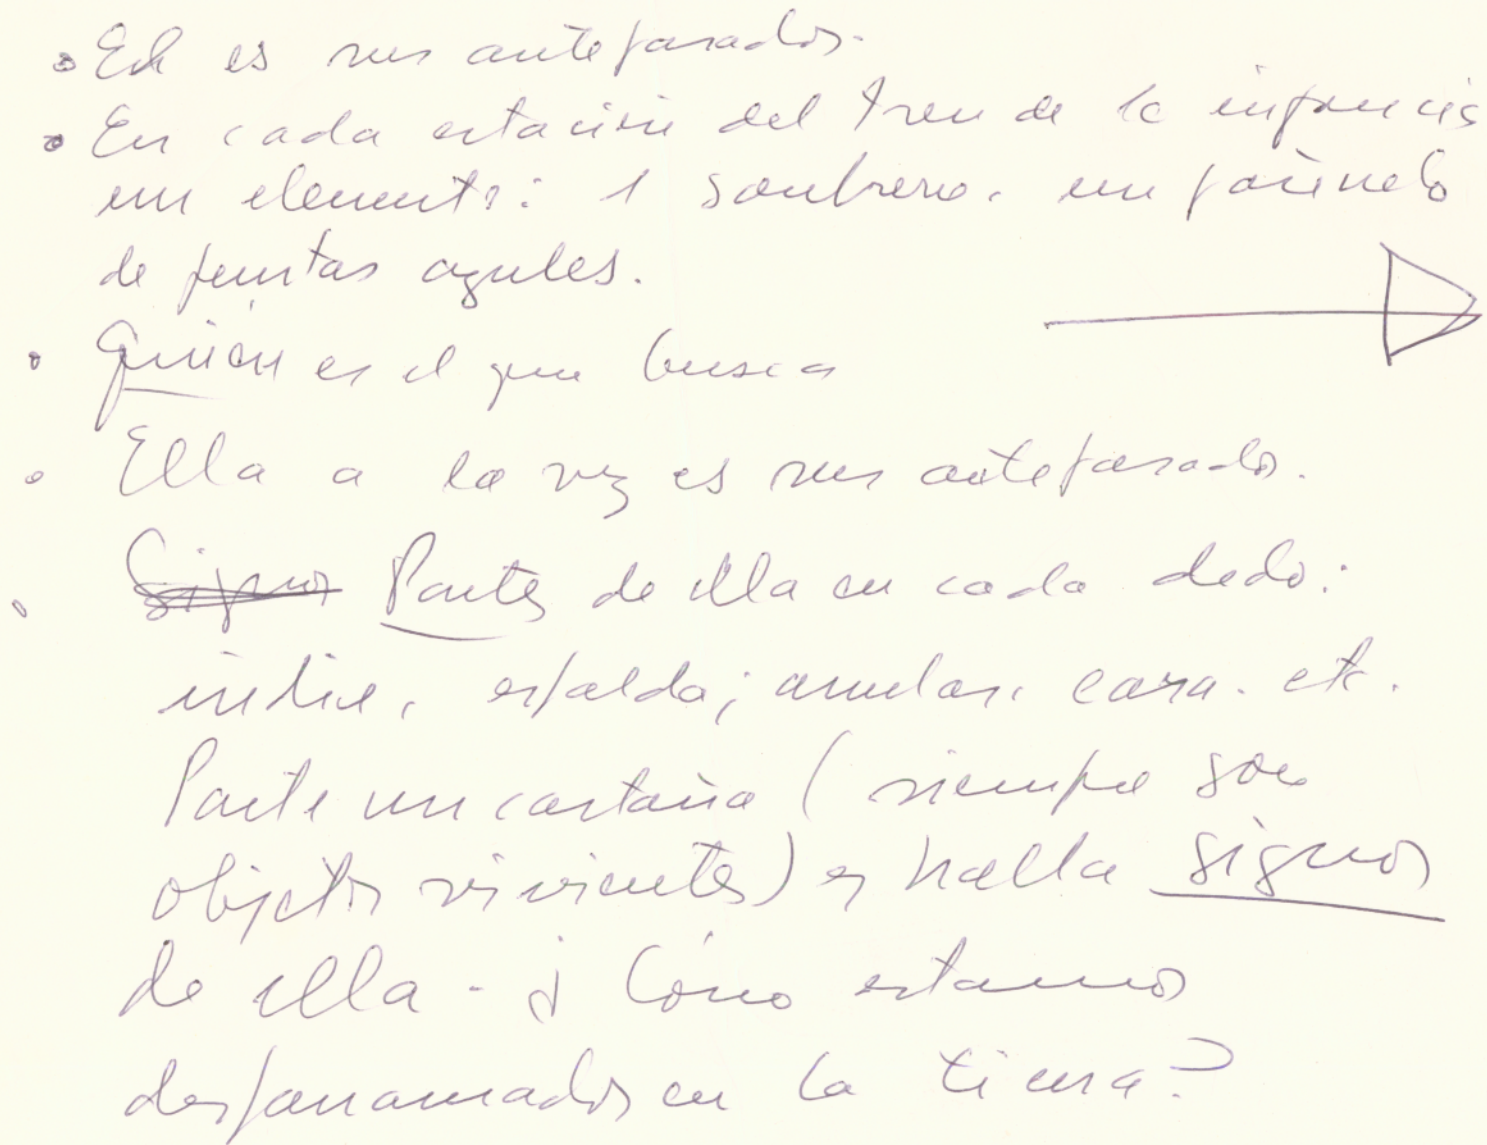 • Él es sus antepasados.
• En cada estación del tren de la infancia
un elemento: 1 sombrero, un pañuelo
de pintas azules.
• Quién es el que busca
• Ella a la vez es sus antepasados.
• Signos Partes de ella en cada dedo:
índice, espalda; anular, cara. etc.
Parte un castaña (siempre son
objetos vivientes) y halla signos
de ella - ¿Cómo estamos
desparramados en la tierra?